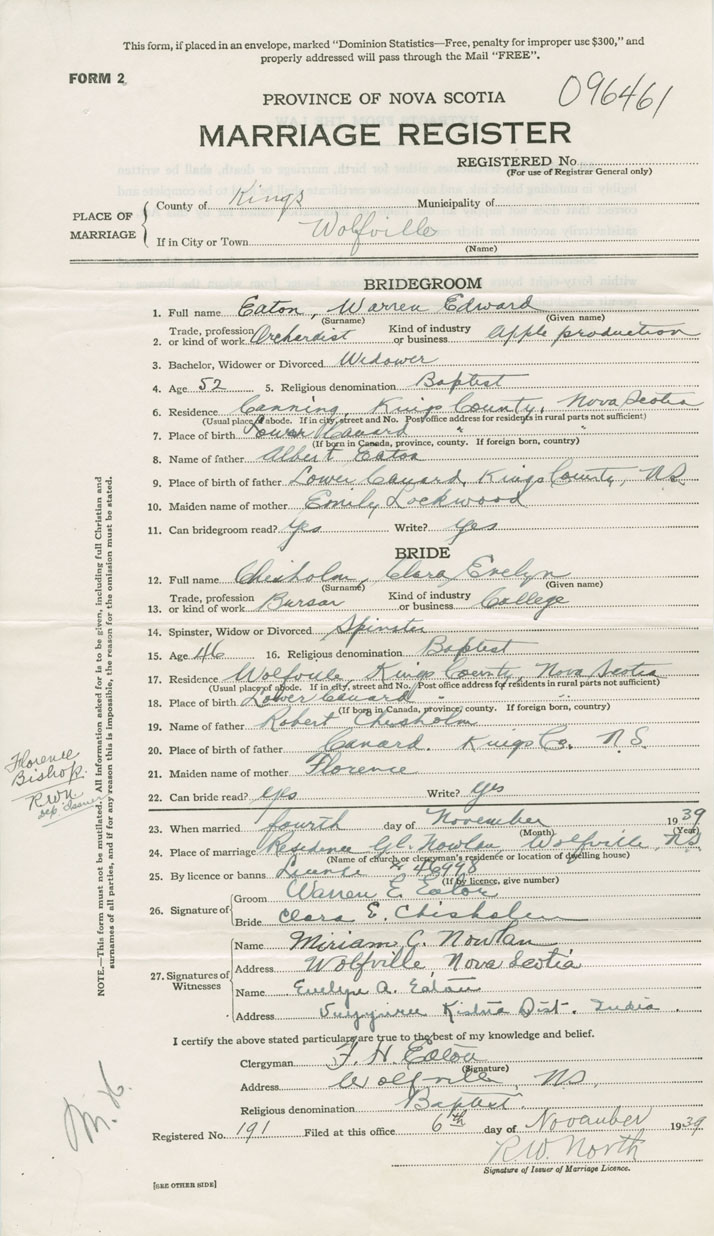 This form, if placed in an envelope, marked "Dominion Statistics—Free, penalty for improper use $300," and
properly addressed will pass through the Mail "FREE".
FORM 2
096461
PROVINCE OF NOVA SCOTIA
MARRIAGE REGISTER
REGISTERED No.
(For use of Registrar General only)
PLACE OF MARRIAGE
County of Kings Municipality of
If in City or Town Wolfville
(Name)
BRIDEGROOM
1. Full name Eaton, Warren Edward
(Surname) (Given name)
2. Trade, profession or kind of work Orchardist Kind of industry or business apple production
3. Bachelor, Widower or Divorced Widower
4. Age 52 5. Religious denomination Baptist
6. Residence Canning, Kings County, Nova Scotia
(Usual place of abode. If in city, street and No. Post office address for residents in rural parts not sufficient)
7. Place of birth Lower Canard " "
(If born in Canada, province, county. If foreign born, country)
8. Name of father Albert Eaton
9. Place of birth of father Lower Canard, Kings County, N.S.
10. Maiden name of mother Emily Lockwood
11. Can bridegroom read? yes Write? yes
BRIDE
12. Full name Chisholm, Clara Evelyn
(Surname) (Given name)
13. Trade, profession or kind of work Bursar Kind of industry or business College
14. Spinster, Widow or Divorced Spinster
15. Age 46 16. Religious denomination Baptist
17. Residence Wolfville, Kings County, Nova Scotia
(Usual place of abode. If in city, street and No. Post office address for residents in rural parts not sufficient)
18. Place of birth Lower Canard " "
(If born in Canada, province, county. If foreign born, country)
19. Name of father Robert Chisholm
20. Place of birth of father Canard. Kings Co. N.S.
21. Maiden name of mother Florence
Florence
Bishop.
RWN
dep. Issuer
22. Can bride read? yes Write? yes
23. When married fourth day of November 1939
(Month) (Year)
24. Place of marriage Residence G.L. Nowlan, Wolfville, NS
(Name of church or clergyman's residence or location of dwelling house)
25. By licence or banns License # 46998
(If by licence, give number)
26. Signature of
Groom Warren E. Eaton
Bride Clara E. Chisholm
27. Signatures of Witnesses
Name Miriam C. Nowlan
Address Wolfville, Nova Scotia
Name Evelyn A. Eaton
Address Kistna Dist. India.
I certify the above stated particulars are true to the best of my knowledge and belief.
Clergyman F. H. Eaton
(Signature)
Address Wolfville, NS.
Religious denomination Baptist.
Registered No. 191 Filed at this office 6th day of November 1939
R.W. North
Signature of Issuer of Marriage Licence.
[SEE OTHER SIDE]
NOTE.—This form must not be mutilated. All Information asked for is to be given, including full Christian and
surnames of all parties, and if for any reason this is impossible, the reason for the omission must be stated.